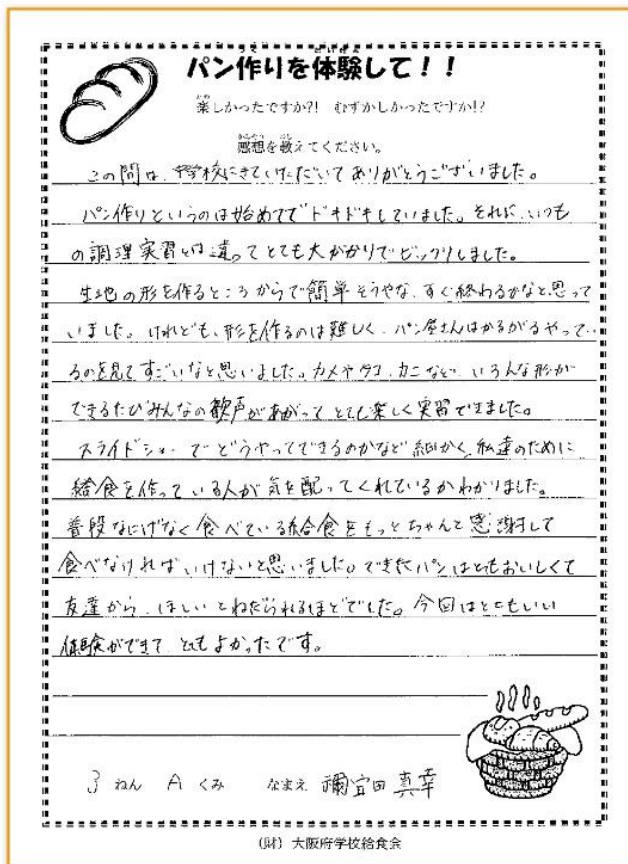 パン作りを体験して！！
楽しかったですか?!　むずかしかったですか!?
感想を教えてください。
この間は、中学校にきていただいてありがとうございました。
パン作りというのは始めてでドキドキしていました。それに、いつも
の調理実習とは違ってとても大がかりでビックリしました。
生地の形を作るところからで簡単そうやな、すぐ終わるかなと思って
いました。けれども、形を作るのは難しく、パン屋さんはかるがるやってい
るのを見てすごいなと思いました。カメやタコ、カニなど、いろんな形が
できるたびみんなの歓声があがってとても楽しく実習できました。
スライドショーでどうやってできるのかなど細かく、私達のために
給食を作っている人が気を配ってくれているかわかりました。
普段なにげなく食べている給食をもっとちゃんと感謝して
食べなければいけないと思いました。できたパンはとてもおいしくて
友達から、ほしいとねだられるほどでした。今回はとてもいい
体験ができて、とてもよかったです。
3 ねん A くみ なまえ 禰宜田 真幸
(財) 大阪府学校給食会